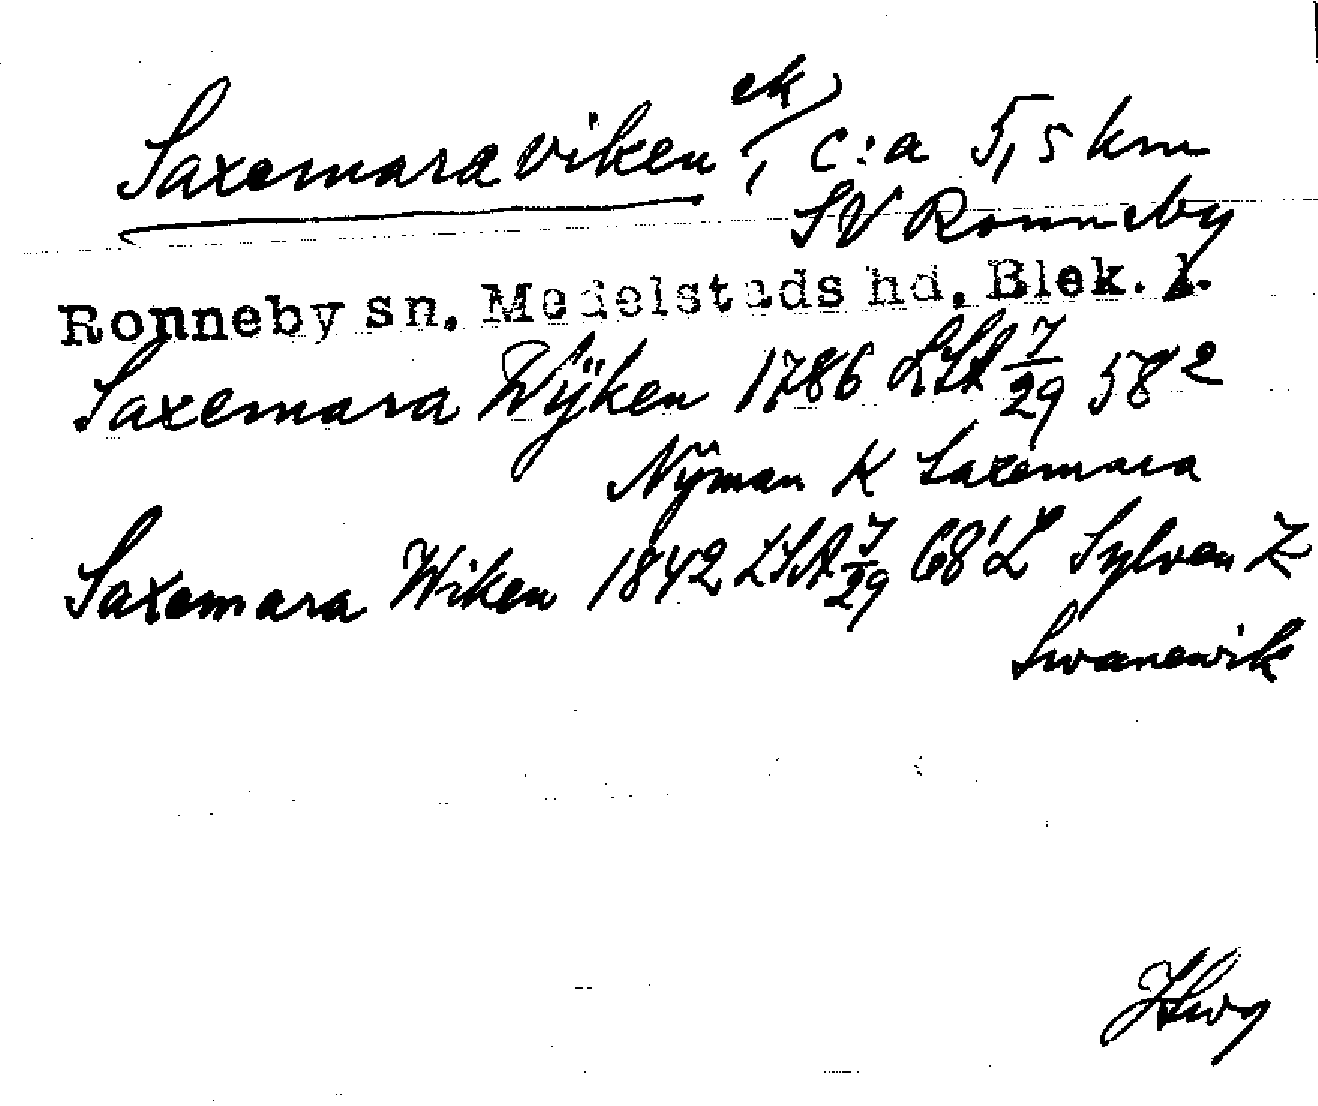 Saxemaraviken ek, c:a 5,5 km
SV Ronneby
Ronneby sn, Medelstads hd, Blek. l.
Saxemara Wÿken 1786 LSA 7/29 58²
Nÿman K Saxemara
Saxemara Wiken 1842 LSA 7/29 68' L Sylven K
Swanewik